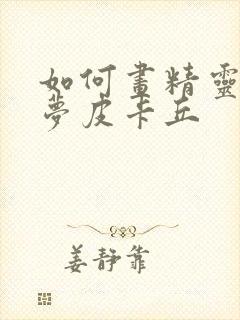 如何畫精靈
夢皮卡丘
姜靜靠